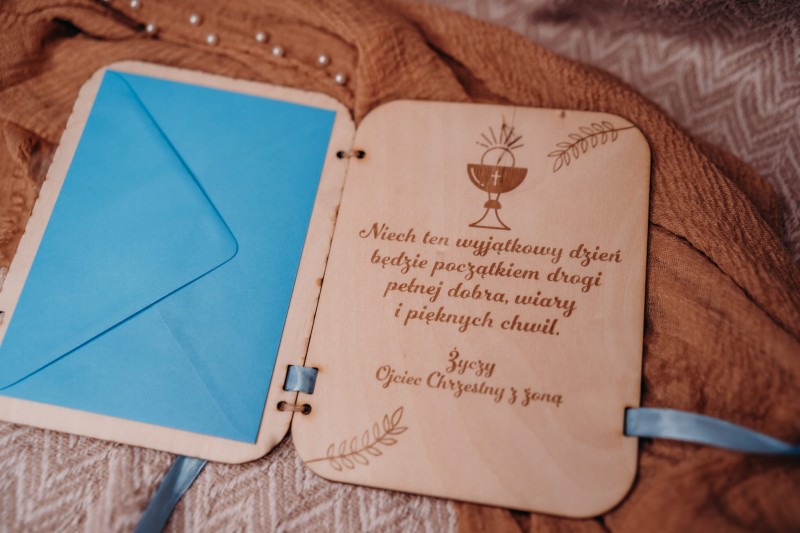 Niech ten wyjątkowy dzień
będzie początkiem drogi
pełnej dobra, wiary
i pięknych chwil.
Życzy
Ojciec Chrzestny z żoną